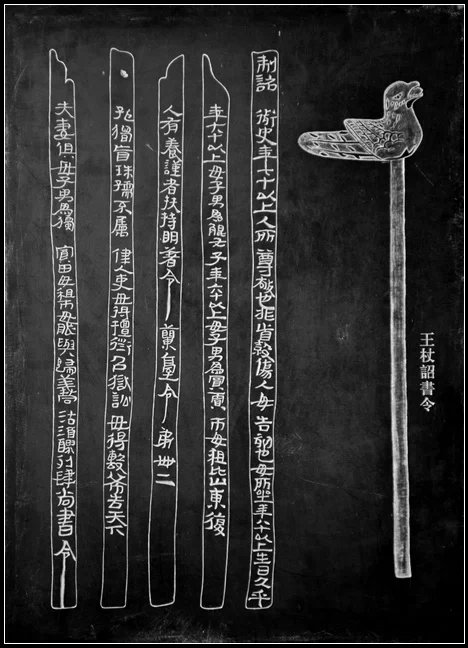 王杖詔書令
制詔 御史年七十以上人所尊敬也非首殺傷人毋告劾也毋所坐年八十以上生日久乎
年六十以上毋子男為鯤女子年六十以上毋子男為寡賈市毋租比山東復
人有養謹者扶持明著令 蘭臺令 第卌二
孤獨盲珠孺不屬 律人吏毋得擅徵召獄訟毋得毄布告天下
夫妻俱毋子男為獨 寡田毋租毋 與歸義 沽酒醪列肆尚書令